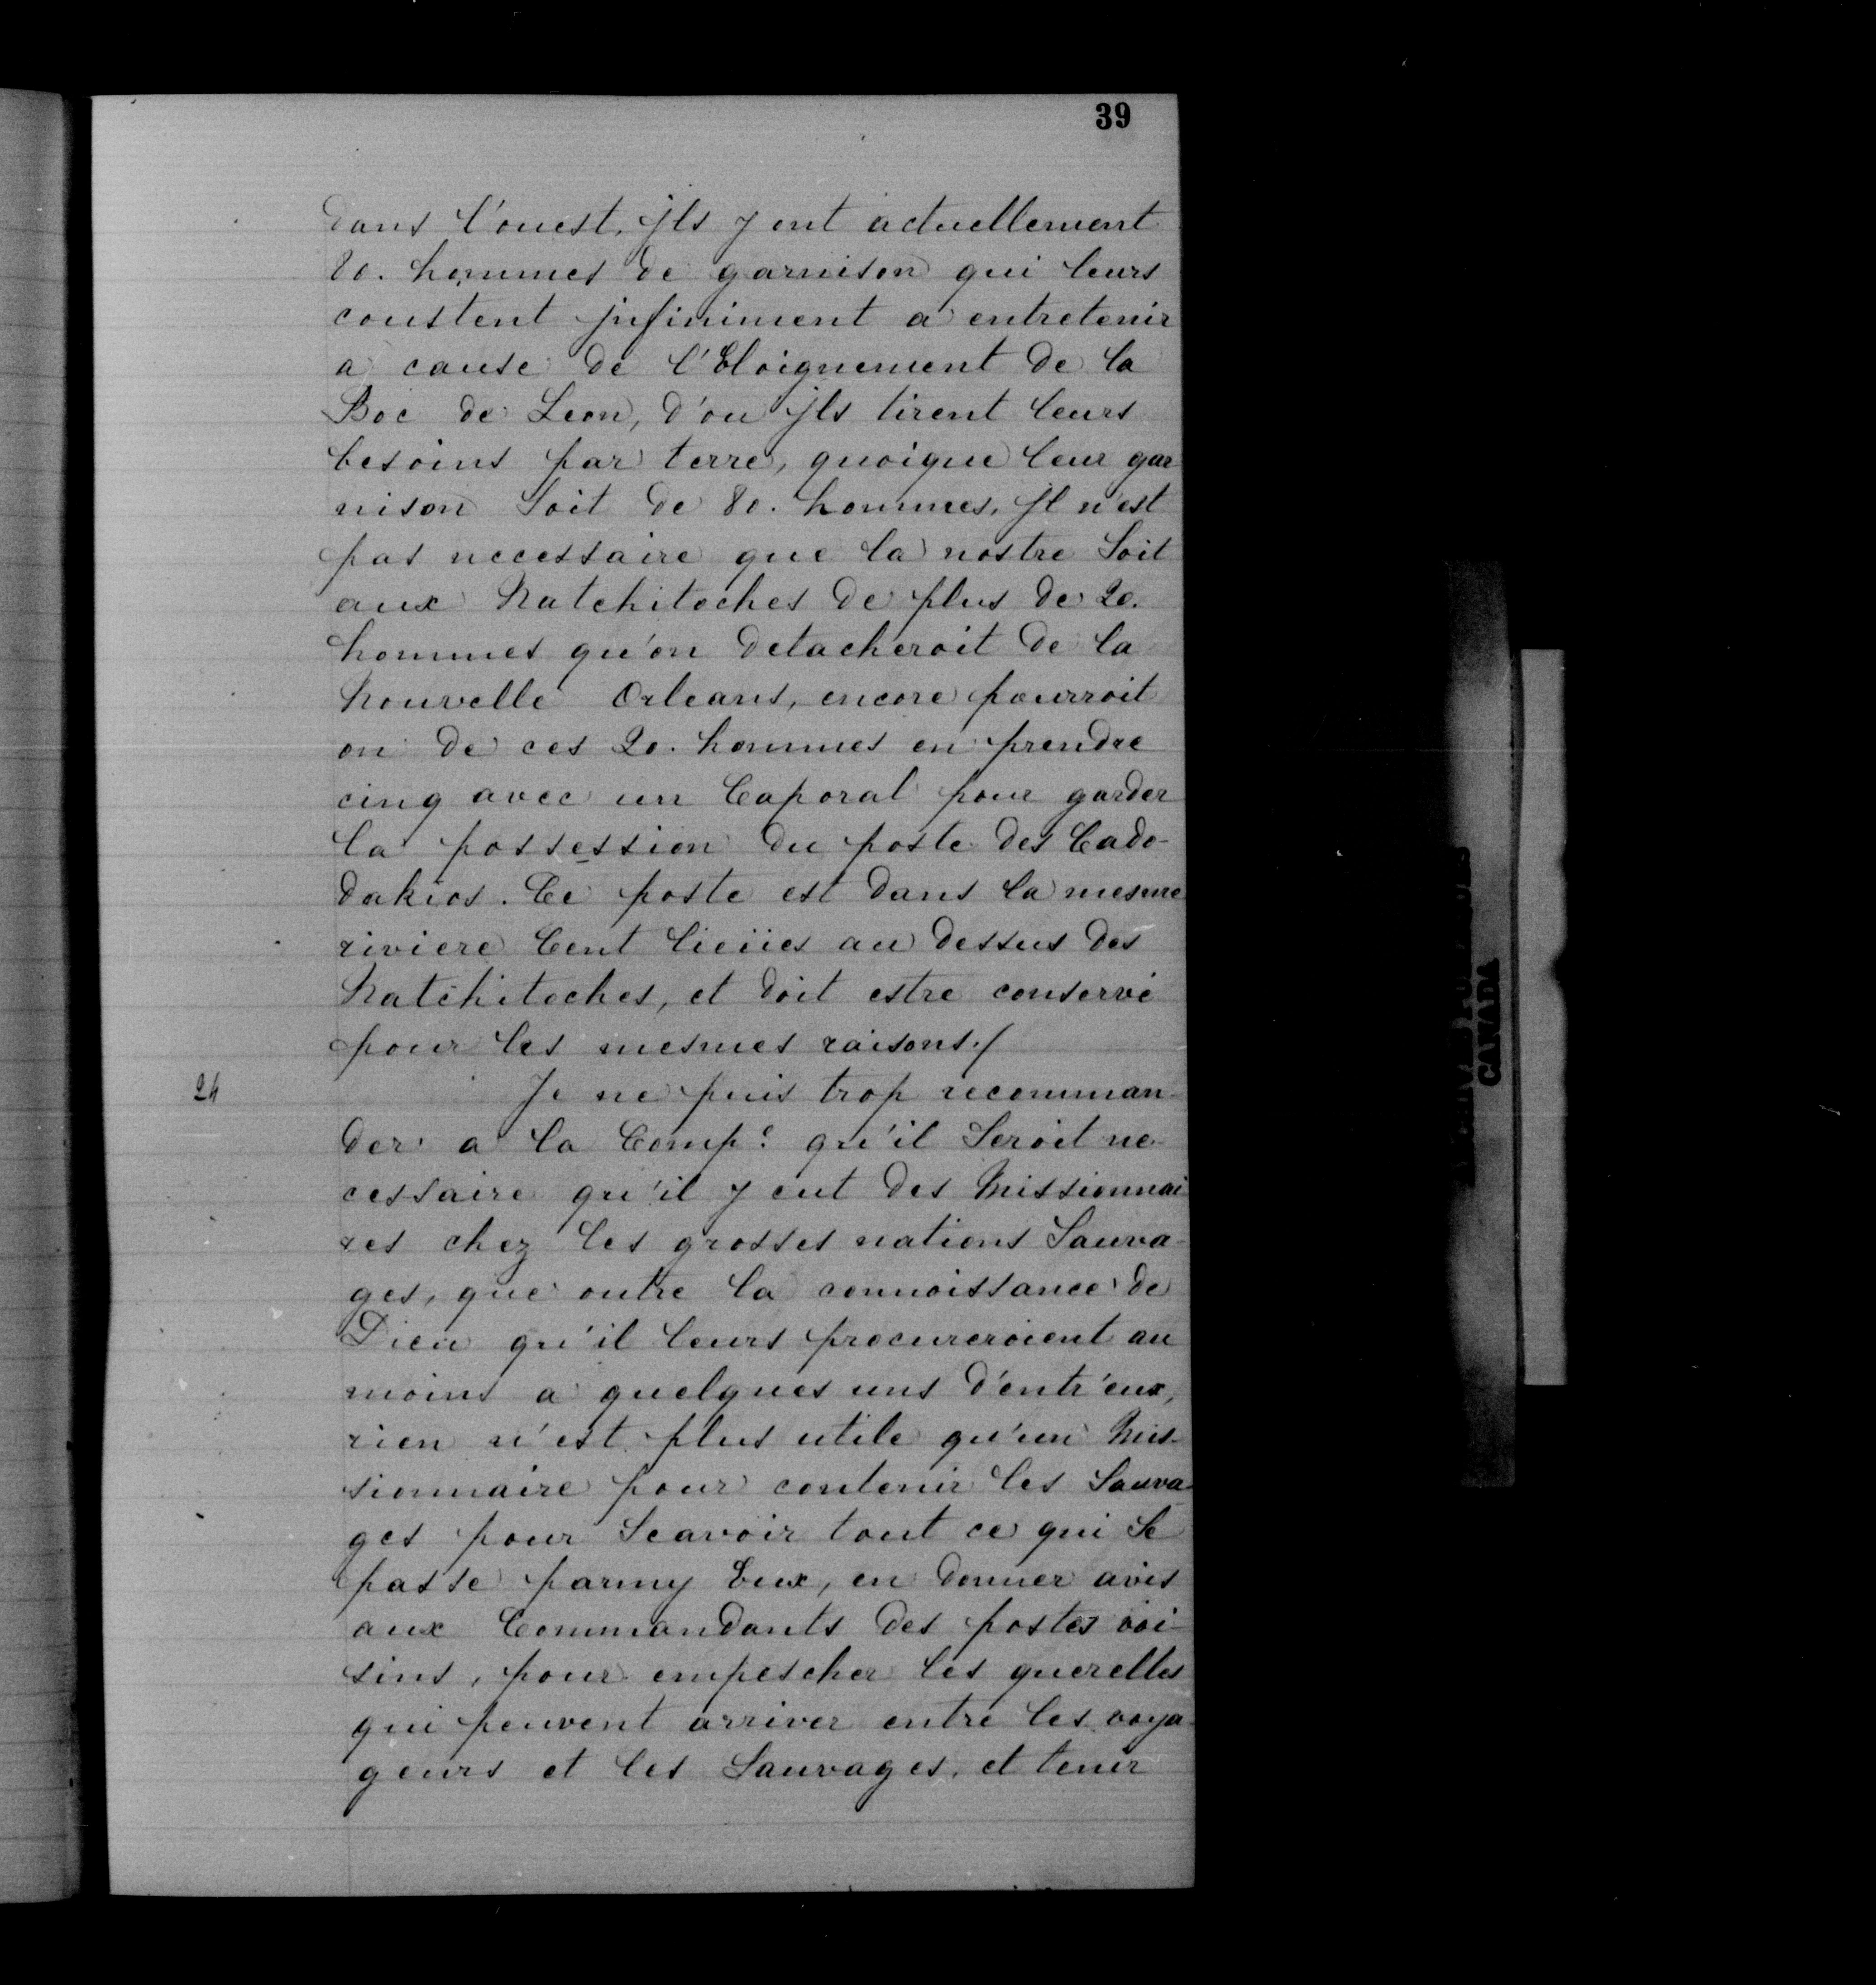 39
dans l'ouest, jls y ont actuellement
80. hommes de garnison qui leurs
coustent jnfiniment a entretenir
a cause de l'Eloignement de la
Boc de Leon, d'ou jls tirent leurs
besoins par terre, quoique leur gar
nison Soit de 80. hommes, Jl n'est
pas necessaire que la nostre Soit
aux Natchitoches de plus de 20.
hommes qu'on detacheroit de la
Nouvelle Orleans, encore pourroit
on de ces 20. hommes en prendre
cinq avec un Caporal pour garder
la possession du poste des Cado-
dakios. Ce poste est dans la mesme
riviere Cent lieües au dessus des
Natchitoches, et doit estre conservé
pour les mesmes raisons./
24
Je ne puis trop recomman-
der a la Compe. qu'il Seroit ne-
cessaire qu'il y eut des Missionnai
res chez les grosses nations Sauva-
ges, que outre la connoissance de
Dieu qu'il leurs procureroient au
moins a quelques uns d'entr'eux,
rien n'est plus utile qu'un Mis-
sionnaire pour contenir les Sauva-
ges pour Scavoir tout ce qui Se
passe parmy Eux, en donner avis
aux Commandants des postes voi-
sins, pour empescher les querelles
qui peuvent arriver entre les voya-
geurs et les Sauvages, et tenir
CANADA